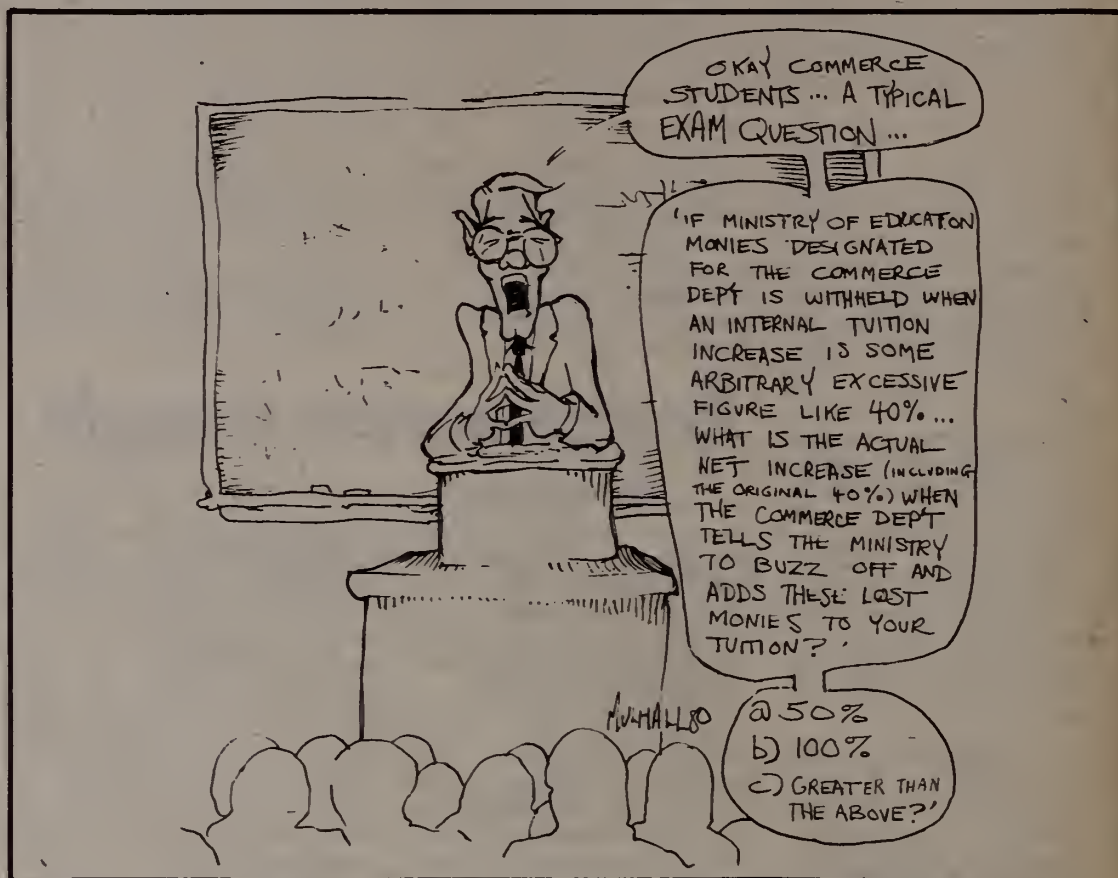 OKAY COMMERCE
STUDENTS... A TYPICAL
EXAM QUESTION...
'IF MINISTRY OF EDUCATION
MONIES DESIGNATED
FOR THE COMMERCE
DEP'T IS WITHHELD WHEN
AN INTERNAL TUITION
INCREASE IS SOME
ARBITRARY EXCESSIVE
FIGURE LIKE 40%...
WHAT IS THE ACTUAL
NET INCREASE (INCLUDING
THE ORIGINAL 40%) WHEN
THE COMMERCE DEP'T
TELLS THE MINISTRY
TO BUZZ OFF AND
ADDS THESE LOST
MONIES TO YOUR
TUITION?'
MULHALL 80
a) 50%
b) 100%
c) GREATER THAN
THE ABOVE?'